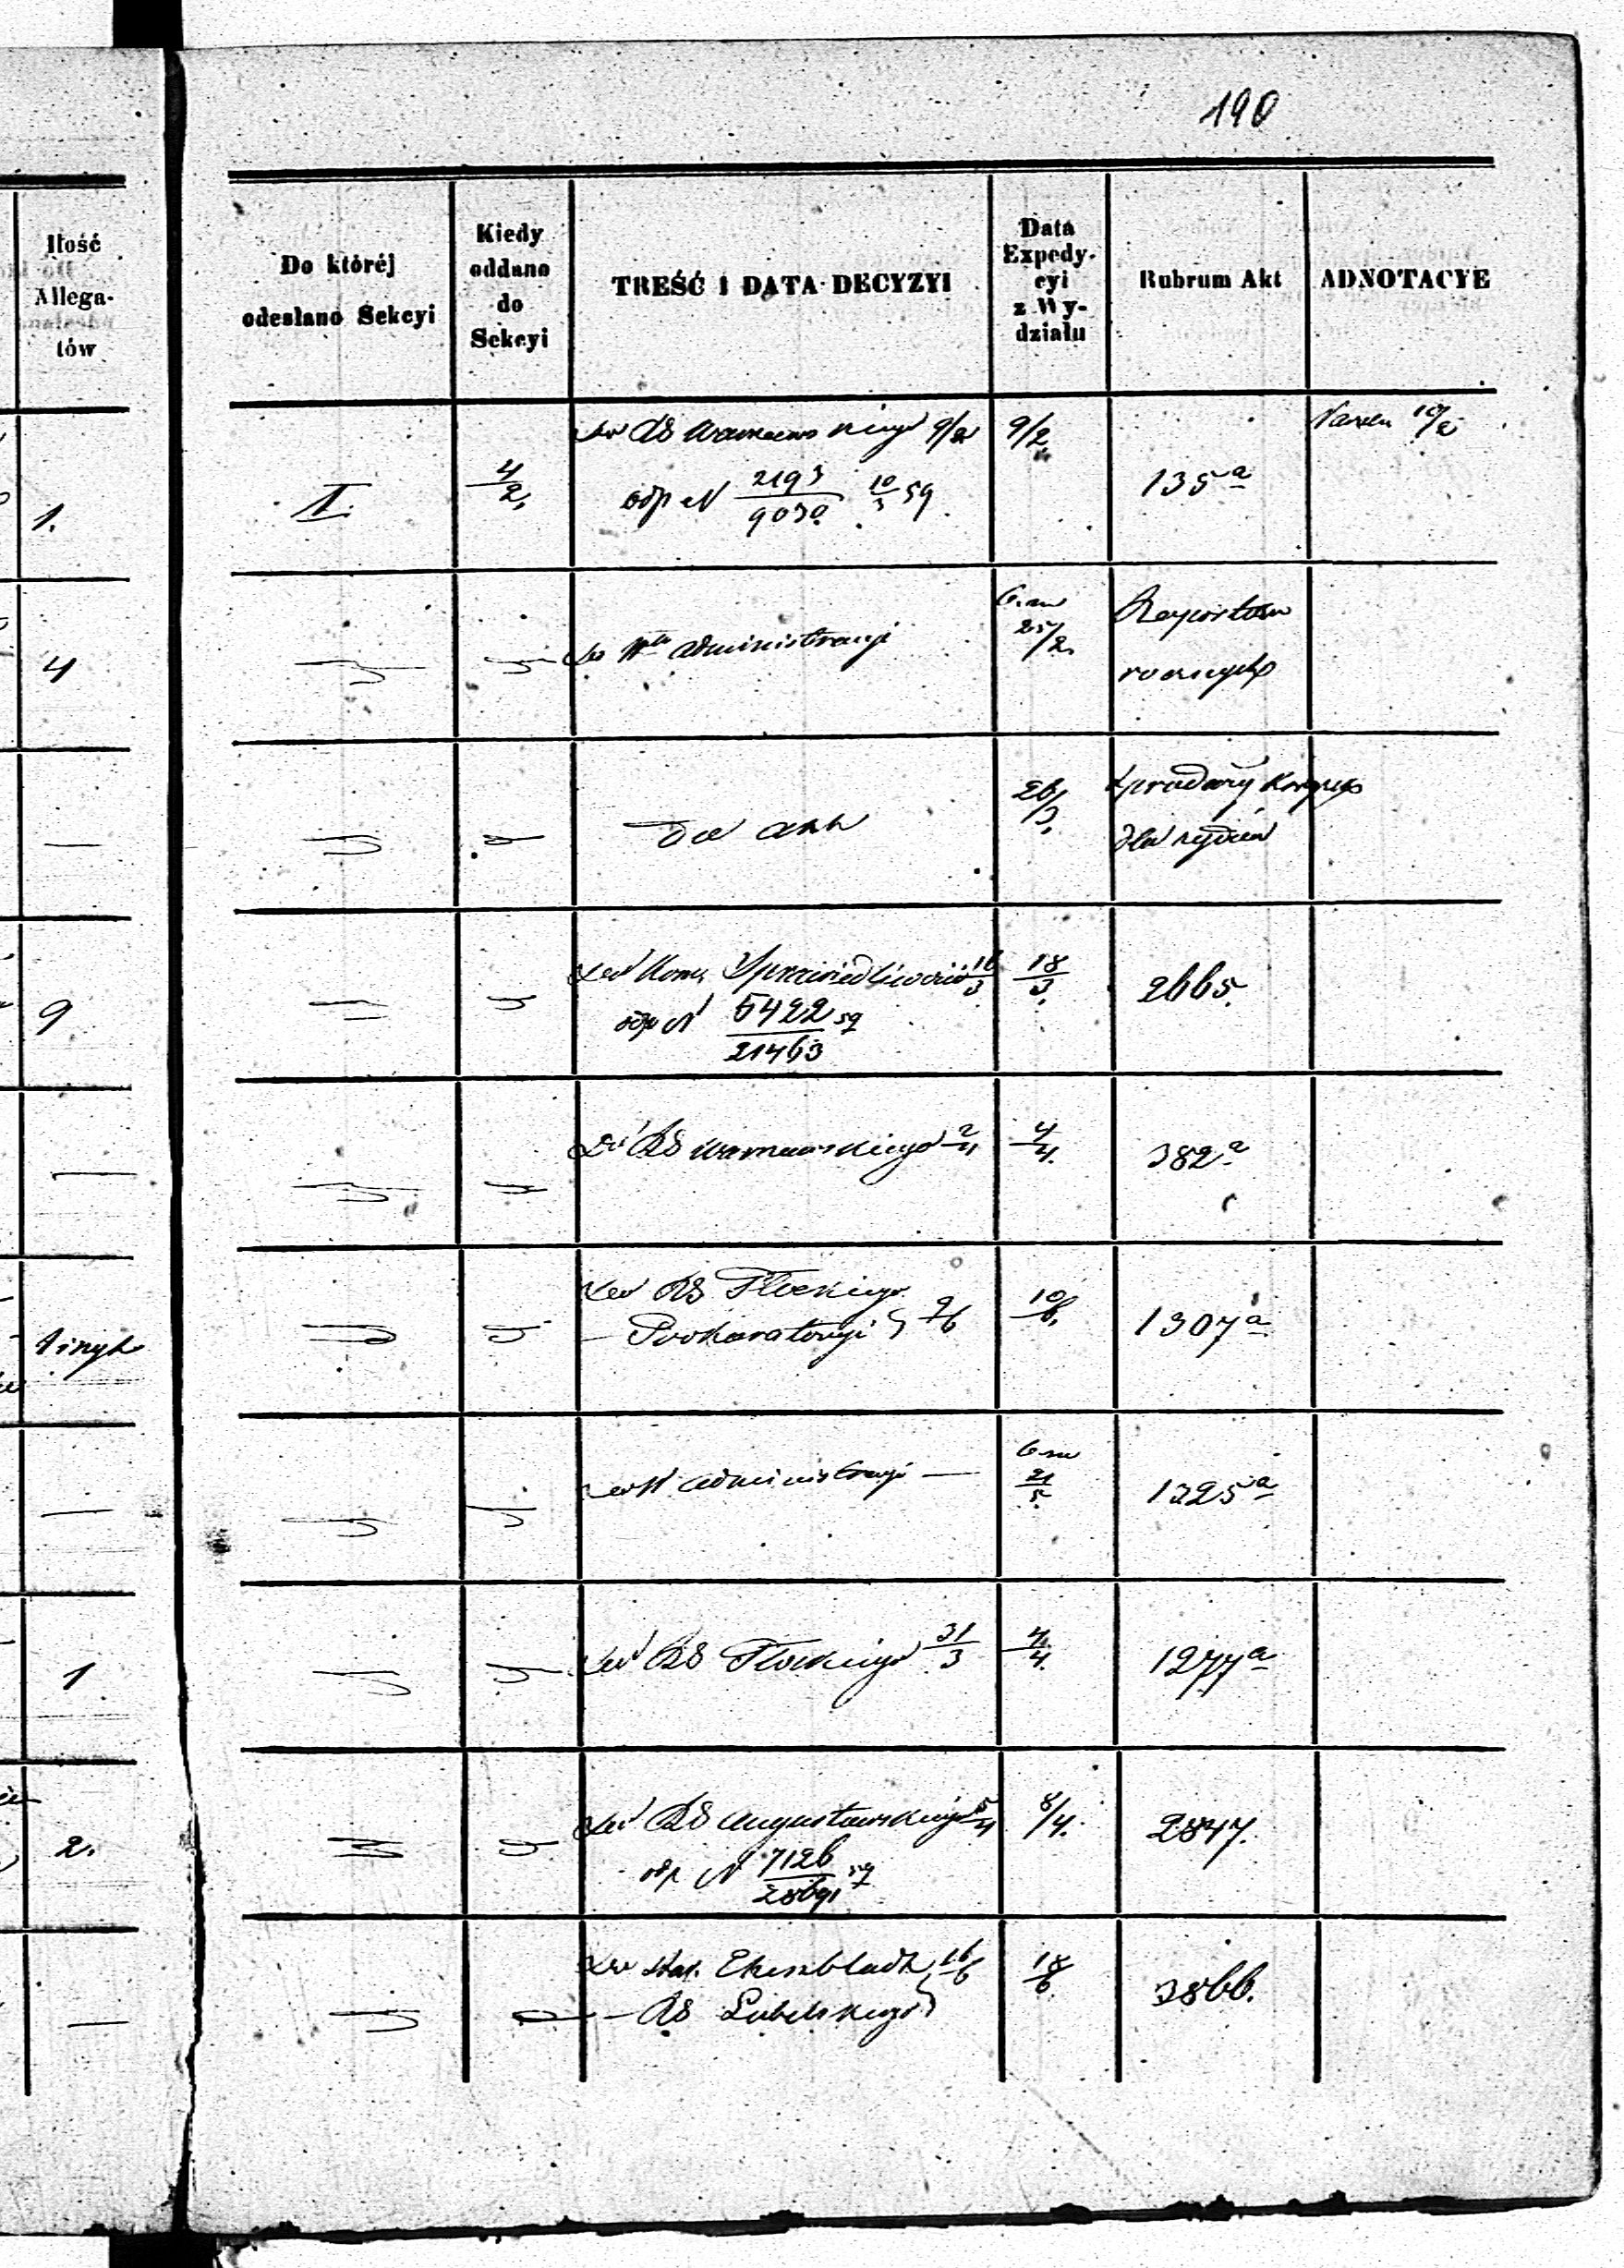 190
Ilość
Allega-
tów
Do któréj
odesłano Sekcyi
Kiedy
oddano
do
Sekcyi
TREŚĆ I DATA DECYZYI
Data
Expedy-
cyi
z Wy-
działu
Rubrum Akt
ADNOTACYE
1.
II.
4/2.
RG Warszawskiego 9/2
odp N 2193/9030 10/3 59
9/2
135a
10/2
4
Administracyi
25/2.
Raportów
rocznych
—
Do akt
26/3.
Sprzedaży
dla
9
Kom. Sprawiedliwości 16/3
odp N 5422/21463 59
18/3.
2665.
—
Do RG Warszawskiego 2/4
4/4.
382a
RG Płockiego
— Prokuratoryi } 9/6
10/6.
1307a
—
Administracyi —
21/5.
1325a
1
RG Płockiego 31/3
4/4.
1277a
2.
RG Augustowskiego 5/4
odp N 7126/28691 59
8/4.
2847.
—
Ekenbladh } 16/6
— RG Lubelskiego
18/6
3866.